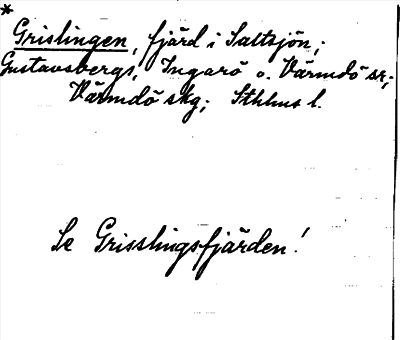 *
Grislingen, fjärd i Saltsjön;
Gustavsbergs, Ingarö o. Värmdö sr;
Värmdö skg; Sthlms l.
Se Grisslingsfjärden!